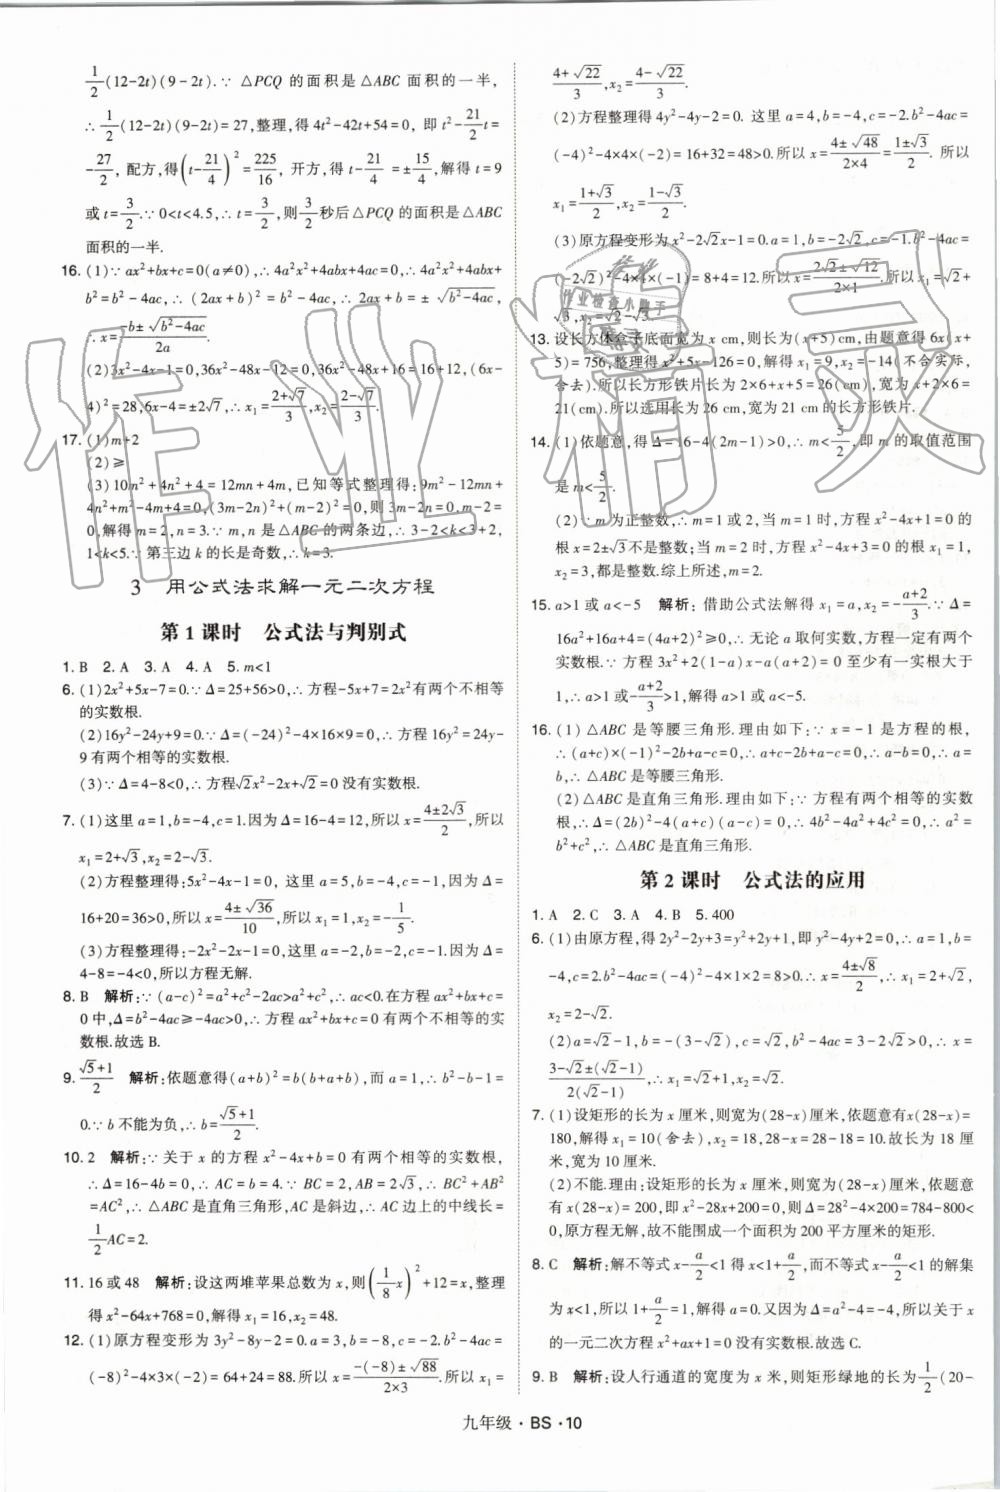 1/2(12-2t)(9-2t).∵ △PCQ 的面积是△ABC 面积的一半,
∴ 1/2(12-2t)(9-2t)=27,整理,得 4t²-42t+54=0, 即 t²-21/2t=
-27/2, 配方,得(t-21/4)²=225/16, 开方,得 t-21/4=±15/4,解得 t=9
或 t=3/2.∵ 0<t<4.5,∴ t=3/2,则3/2秒后△PCQ 的面积是△ABC
面积的一半.
16. (1)∵ ax²+bx+c=0(a≠0),∴ 4a²x²+4abx+4ac=0,∴ 4a²x²+4abx+
b²=b²-4ac,∴ (2ax+b)²=b²-4ac,∴ 2ax+b=±√(b²-4ac),
∴ x=(-b±√(b²-4ac))/2a.
(2)3x²-4x-1=0,36x²-48x-12=0,36x²-48x+16=16+12,(6x-
4)²=28,6x-4=±2√7,∴ x₁=(2+√7)/3,x₂=(2-√7)/3.
17. (1)m+2
(2)≥
(3)10n²+4n²+4=12mn+4m,已知等式整理得:9m²-12mn+
4n²+m²-4m+4=0,(3m-2n)²+(m-2)²=0,则 3m-2n=0,m-2=
0,解得 m=2,n=3.∵ m,n 是△ABC 的两条边,∴ 3-2<k<3+2,
1<k<5.∵ 第三边 k 的长是奇数,∴ k=3.
3 用公式法求解一元二次方程
第 1 课时 公式法与判别式
1. B 2. A 3. A 4. A 5. m<1
6. (1)2x²+5x-7=0.∵ Δ=25+56>0,∴ 方程-5x+7=2x²有两个不相等
的实数根.
(2)16y²-24y+9=0.∵ Δ=(-24)²-4×16×9=0,∴ 方程 16y²=24y-
9 有两个相等的实数根.
(3)∵ Δ=4-8<0,∴ 方程√2x²-2x+√2=0 没有实数根.
7. (1)这里 a=1,b=-4,c=1.因为 Δ=16-4=12,所以 x=(4±2√3)/2,所以
x₁=2+√3,x₂=2-√3.
(2)方程整理得:5x²-4x-1=0, 这里 a=5,b=-4,c=-1.因为 Δ=
16+20=36>0,所以 x=(4±√36)/10,所以 x₁=1,x₂=-1/5.
(3)方程整理得:-2x²-2x-1=0,这里 a=-2,b=-2,c=-1.因为 Δ=
4-8=-4<0,所以方程无解.
8. B 解析:∵ (a-c)²=a²+c²-2ac>a²+c²,∴ ac<0.在方程 ax²+bx+c=
0 中,Δ=b²-4ac≥-4ac>0,∴ 方程 ax²+bx+c=0 有两个不相等的实
数根.故选 B.
9. (√5+1)/2 解析:依题意得(a+b)²=b(b+a+b),而 a=1,∴ b²-b-1=
0.∵ b 不能为负,∴ b=(√5+1)/2.
10. 2 解析:∵ 关于 x 的方程 x²-4x+b=0 有两个相等的实数根,
∴ Δ=16-4b=0,∴ AC=b=4.∵ BC=2,AB=2√3,∴ BC²+AB²
=AC²,∴ △ABC 是直角三角形,AC 是斜边,∴ AC 边上的中线长=
1/2AC=2.
11. 16 或 48 解析:设这两堆苹果总数为 x,则(1/8x)²+12=x,整理
得 x²-64x+768=0,解得 x₁=16,x₂=48.
12. (1)原方程变形为 3x²-8y-2=0.a=3,b=-8,c=-2.b²-4ac=
(-8)²-4×3×(-2)=64+24=88.所以 x=(-(-8)±√88)/(2×3).所以 x₁=
(4+√22)/3,x₂=(4-√22)/3.
(2)方程整理得 4y²-4y-2=0. 这里 a=4,b=-4,c=-2.b²-4ac=
(-4)²-4×4×(-2)=16+32=48>0.所以 x=(4±√48)/(2×4)=(1±√3)/2. 所以
x₁=(1+√3)/2,x₂=(1-√3)/2.
(3)原方程变形为 x²-2√2x-1=0.a=1,b=-2√2,c=-1.b²-4ac=
(-2√2)²-4×1×(-1)=8+4=12.所以 x=(2√2±√12)/(2×1).所以 x₁=√2+
√3,x₂=√2-√3.
13. 设长方体盒子底面宽为 x cm,则长为(x+5)cm,由题意得 6x(x+
5)=756,整理得 x²+5x-126=0,解得 x₁=9,x₂=-14(不合实际,
舍去).所以长方形铁片长为 2×6+x+5=26(cm),宽为 x+2×6=
21(cm).所以选用长为 26 cm,宽为 21 cm 的长方形铁片.
14. (1)依题意,得 Δ=16-4(2m-1)>0,∴ m<5/2,即 m 的取值范围
是 m<5/2.
(2)∵ m 为正整数,∴ m=1 或 2,当 m=1 时,方程 x²-4x+1=0 的
根 x=2±√3不是整数;当 m=2 时,方程 x²-4x+3=0 的根 x₁=1,
x₂=3 都是整数.综上所述,m=2.
15. a>1 或 a<-5 解析:借助公式法解得 x₁=a,x₂=-(a+2)/3.∵ Δ=
16a²+16a+4=(4a+2)²≥0,∴ 无论 a 取何实数,方程一定有两个
实数根.∵ 方程 3x²+2(1-a)x-a(a+2)=0 至少有一实根大于
1,∴ a>1 或-(a+2)/3>1,解得 a>1 或 a<-5.
16. (1)△ABC 是等腰三角形.理由如下:∵ x=-1 是方程的根,
∴ (a+c)×(-1)²-2b+a-c=0,∴ a+c-2b+a-c=0,∴ a-b=0,∴ a=
b,∴ △ABC 是等腰三角形.
(2)△ABC 是直角三角形.理由如下:∵ 方程有两个相等的实数
根,∴ Δ=(2b)²-4(a+c)(a-c)=0,∴ 4b²-4a²+4c²=0,∴ a²=
b²+c²,∴ △ABC 是直角三角形.
第 2 课时 公式法的应用
1. A 2. C 3. A 4. B 5. 400
6. (1)由原方程,得 2y²-2y+3=y²+2y+1,即 y²-4y+2=0,∴ a=1,b=
-4,c=2.b²-4ac=(-4)²-4×1×2=8>0,∴ x=(4±√8)/2,∴ x₁=2+√2,
x₂=2-√2.
(2)a=√2-1,b=-(3-√2),c=√2,b²-4ac=3-2√2>0,∴ x=
(3-√2±(√2-1))/(2(√2-1)),∴ x₁=√2+1,x₂=√2.
7. (1)设矩形的长为 x 厘米,则宽为(28-x)厘米,依题意有x(28-x)=
180,解得 x₁=10(舍去),x₂=18,28-x=28-18=10.故长为 18 厘
米,宽为 10 厘米.
(2)不能.理由:设矩形的长为 x 厘米,则宽为(28-x)厘米,依题意
有 x(28-x)=200,即 x²-28x+200=0,则 Δ=28²-4×200=784-800<
0,原方程无解,故不能围成一个面积为 200 平方厘米的矩形.
8. C 解析:解不等式 x-a/2<1 得 x<1+a/2,而不等式 x-a/2<1 的解集
为 x<1,所以 1+a/2=1,解得 a=0.又因为 Δ=a²-4=-4,所以关于 x
的一元二次方程 x²+ax+1=0 没有实数根.故选 C.
9. B 解析:设人行通道的宽度为 x 米,则矩形绿地的长为1/2(20-
九年级·BS·10
作业精灵
作业
作业检查小助手
精灵